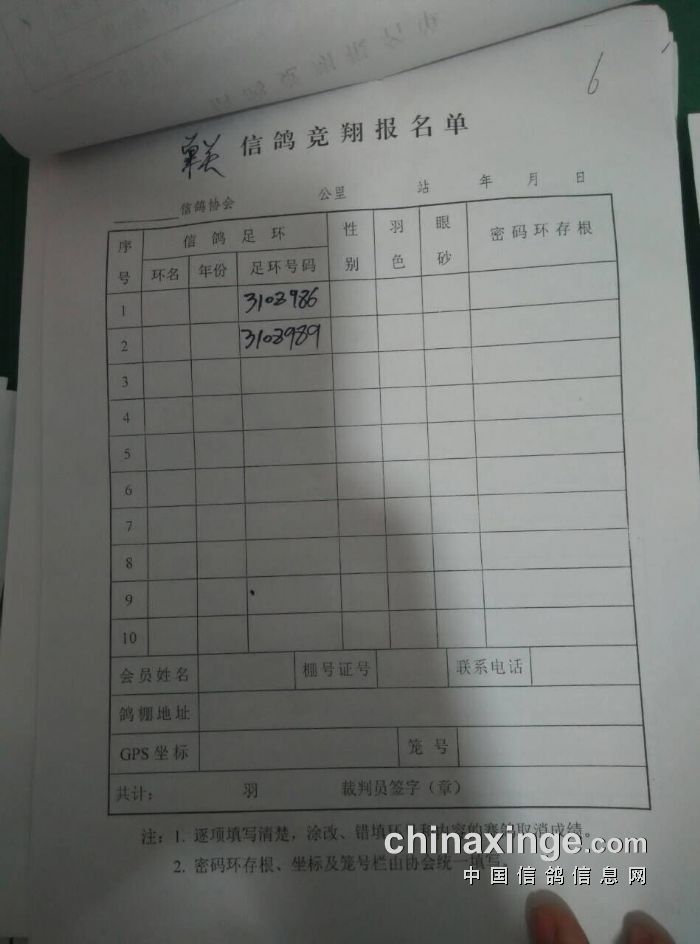 6
信鸽竞翔报名单
信鸽协会 公里 站 年 月 日
序号 信鸽足环 性别 羽色 眼砂 密码环存根
环名 年份 足环号码
1 3103986
2 3103989
3
4
5
6
7
8
9
10
会员姓名 棚号证号 联系电话
鸽棚地址
GPS坐标 笼号
共计： 羽 裁判员签字（章）
注：1. 逐项填写清楚，涂改、错填环 内容的赛鸽取消成绩。
2. 密码环存根、坐标及笼号栏由协会统一填写。
chinaxinge.com
中国信鸽信息网